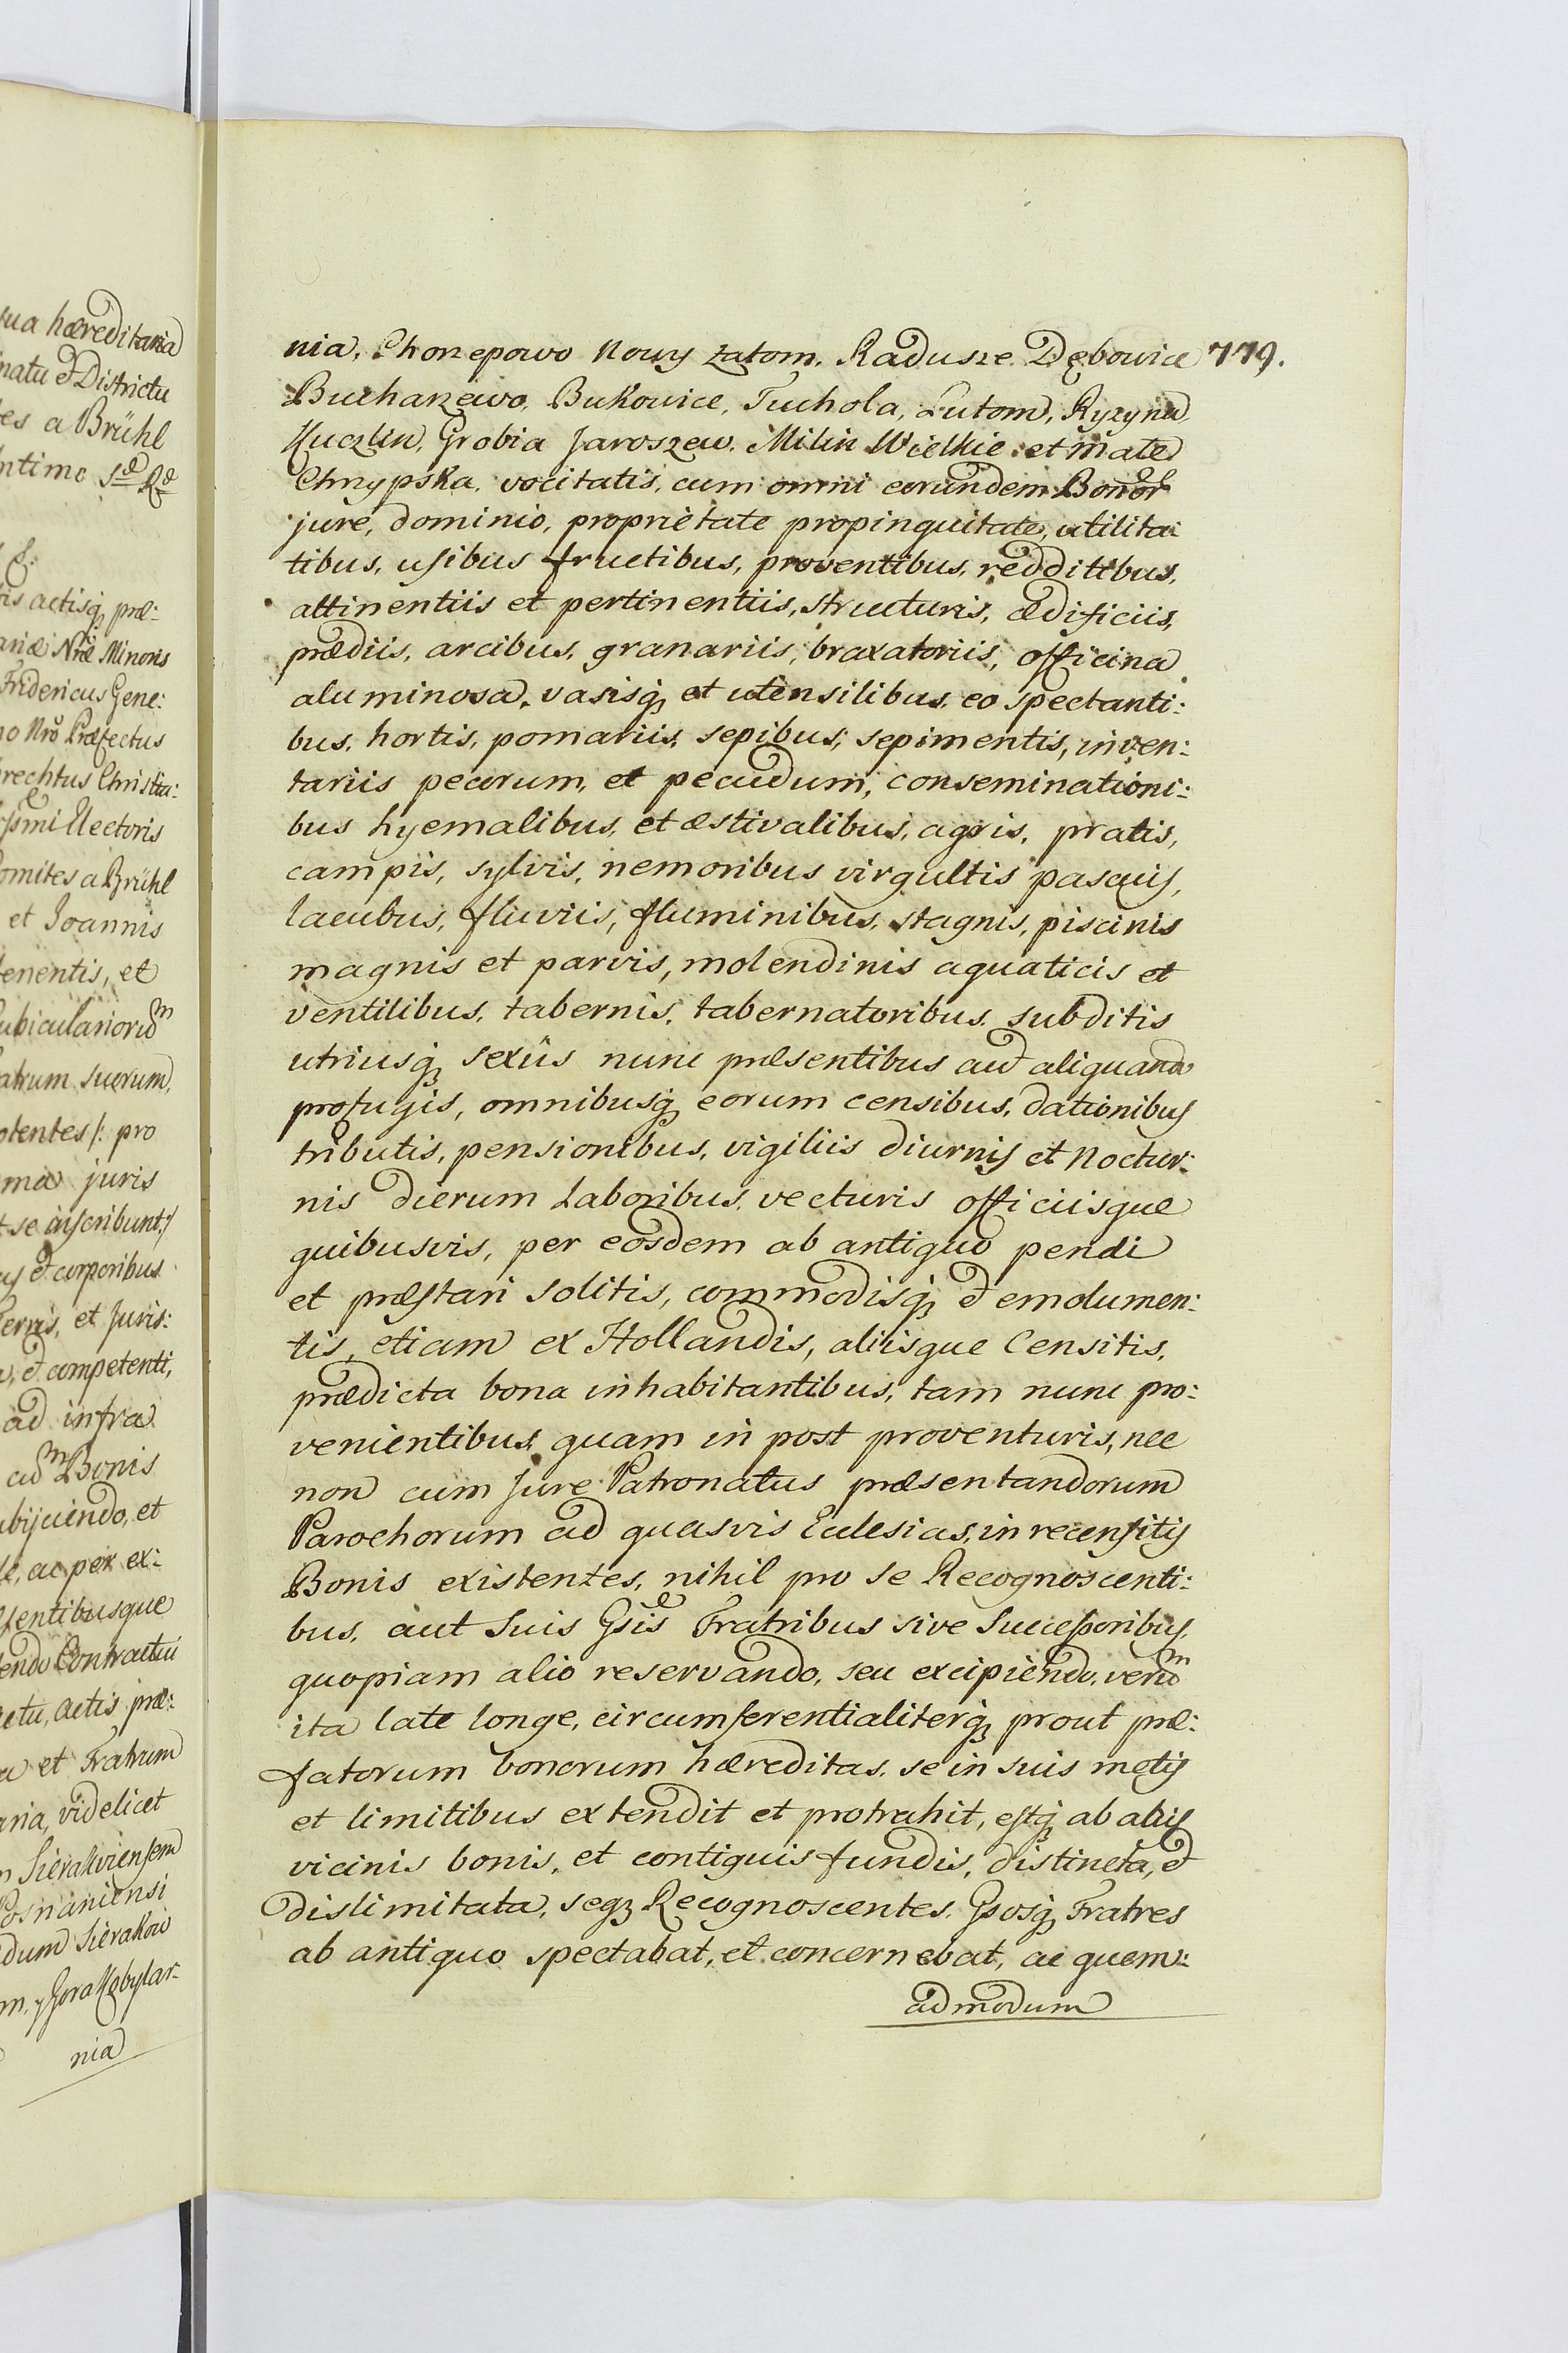 ua hæreditaria
natu et Districtu
es a Brühl
ntimo
is actisq; præ:
anæ Nræ Minoris
Fridericus Gene:
o Nro Præfectus
brechtus Christia:
Electoris
omites a Brühl
et Joannis
tenentis, et
ubiculariorum
atrum suorum,
otentes /: pro
ma juris
t se inscribunt:/
us et corporibus
ternis, et Juris:
et competenti,
ad infra
ad Bonis
bijciendo, et
le, ac per ex:
sentibusque
endo Contractui
ctu, Actis præ:
a et Fratrum
aria, videlicet
m Sierakviensem
Posnaniensi
dum Sierakow
m, y Gora Kobylar-
nia
nia, Chorzepowo Nowy Zatom, Radusze Dębowice 779.
Bucharzewo, Bukowice, Tuchola, Lutom, Ryzyna,
Kuczlin, Grobia Jaroszew, Milin Wielkie et małe
Chrzypska, vocitatis, cum omni eorundem Bonor
jure, dominio, proprietate propinquitate, utilita:
tibus, usibus fructibus, proventibus, redditibus,
attinentiis et pertinentiis, structuris, ædificiis,
prædiis, arcibus, granariis, braxatoriis, officina
aluminosa, vasisq; et utensilibus eo spectanti:
bus, hortis, pomariis, sepibus, sepimentis, inven:
tariis pecorum, et pecudum, conseminationi:
bus hyemalibus, et æstivalibus, agris, pratis,
campis, sylvis, nemoribus virgultis pascuis,
lacubus, fluviis, fluminibus, stagnis, piscinis
magnis et parvis, molendinis aquaticis et
ventilibus, tabernis, tabernatoribus, subditis
utriusq; sexûs nunc præsentibus aut aliquando
profugis, omnibusq; eorum censibus, dationibus
tributis, pensionibus, vigiliis diurnis et noctur:
nis dierum laboribus, vecturis officiisque
quibusvis, per eosdem ab antiquo pendi
et præstari solitis, commodisq; et emolumen:
tis, etiam ex Hollandis, aliisque Censitis,
prædicta bona inhabitantibus, tam nunc pro:
venientibus quam in post proventuris, nec
non cum Jure Patronatus præsentandorum
Parochorum ad quasvis Ecclesias, in recensitis
Bonis existentes, nihil pro se Recognoscenti:
bus, aut suis Gsis Fratribus sive Successoribus,
quopiam alio reservando, seu excipiendo, verum
ita late longe, circumferentialiterq; prout præ:
fatorum bonorum hæreditas, se in suis metis
et limitibus extendit et protrahit, estq; ab aliis
vicinis bonis, et contiguis fundis, distincta, et
dislimitata, seq; Recognoscentes, Gsosq; Fratres
ab antiquo spectabat, et concernebat, ac quem:
admodum